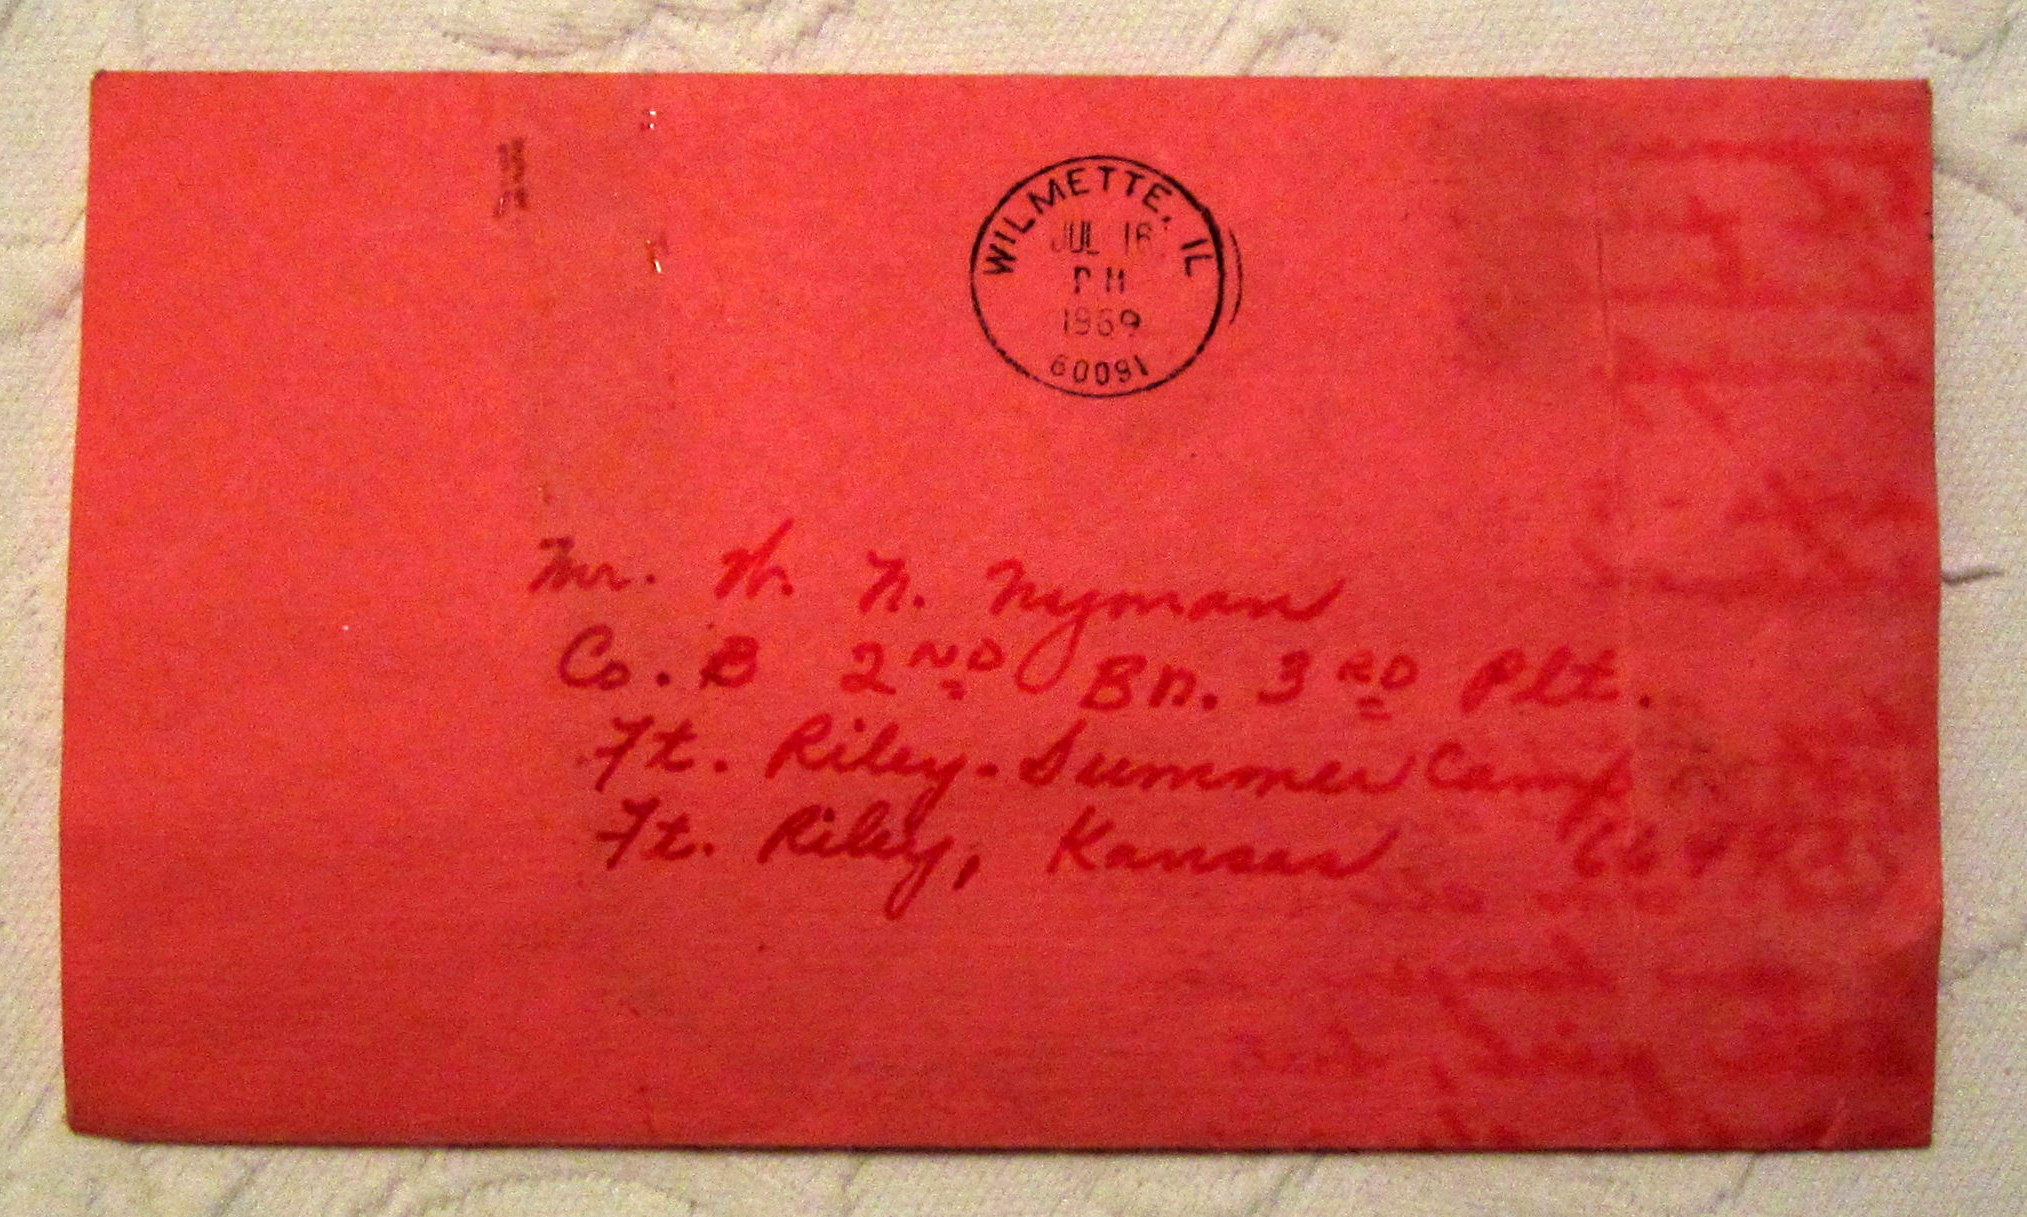 WILMETTE, IL
JUL 16
PM
1969
60091
Mr. W. N. Nyman
Co. B 2ND Bn. 3RD Plt.
Ft. Riley - Summer Camp
Ft. Riley, Kansas 66442